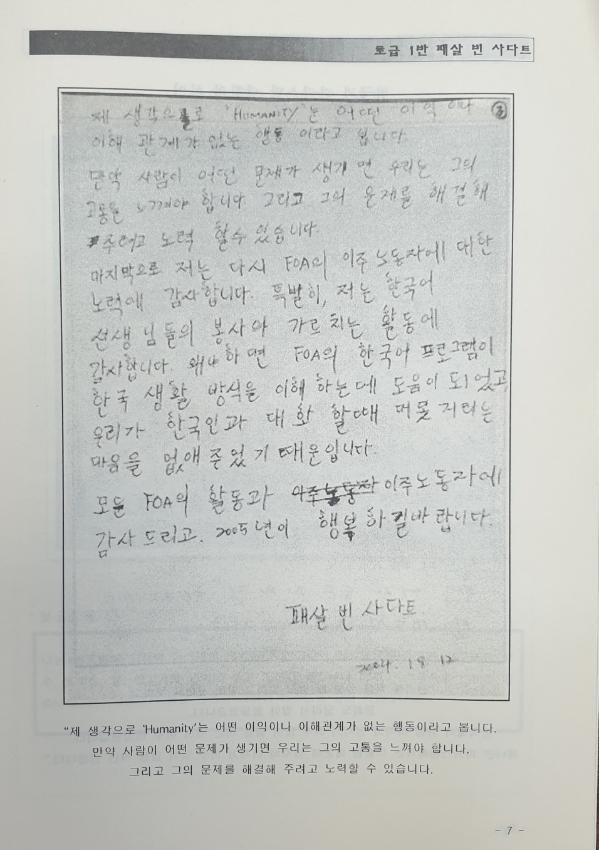 토급 1반 패살 빈 사다트
③
제 생각으로 'HUMANITY'는 어떤 이익이나
이해 관계가 없는 행동 이라고 봅니다.
만약 사람이 어떤 문제가 생기면 우리는 그의
고통을 느껴야 합니다. 그리고 그의 문제를 해결해
주려고 노력 할수 있습니다.
마지막으로 저는 다시 FOA의 이주노동자에 대한
노력에 감사합니다. 특별히, 저는 한국어
선생님들의 봉사와 가르치는 활동에
감사합니다. 왜냐하면 FOA의 한국어 프로그램이
한국 생활 방식을 이해 하는데 도움이 되었고
우리가 한국인과 대화 할때 머뭇거리는
마음을 없애 주었기 때문입니다.
모든 FOA의 활동과 이주노동자에
감사 드리고. 2005년이 행복하길바랍니다.
패살 빈 사다트
2004. 12
"제 생각으로 'Humanity'는 어떤 이익이나 이해관계가 없는 행동이라고 봅니다.
만약 사람이 어떤 문제가 생기면 우리는 그의 고통을 느껴야 합니다.
그리고 그의 문제를 해결해 주려고 노력할 수 있습니다.
- 7 -